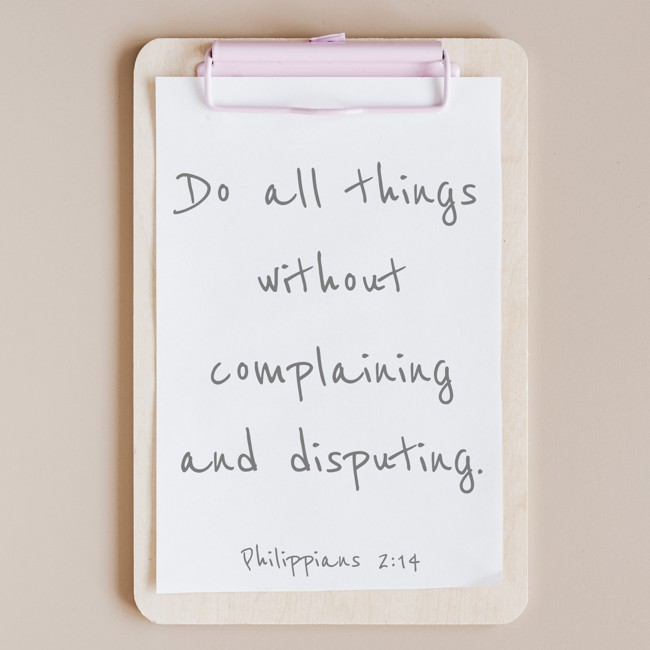 Do all things
without
complaining
and disputing.
Philippians 2:14